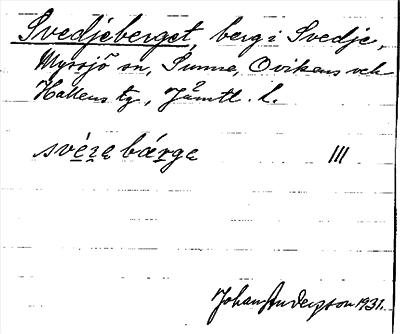 Svedjeberget, berg i Svedje,
Myssjö sn, Sunne, Ovikens och
Hallens tg, Jämtl. l.
svéʒa bárga III
Johan Anderson 1931.